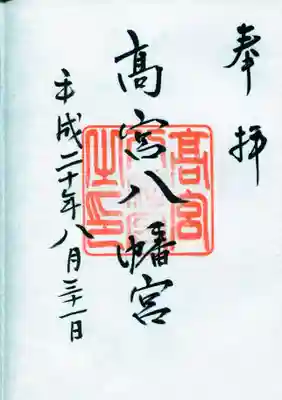 奉拝
髙宮八幡宮
平成二十年八月三十一日